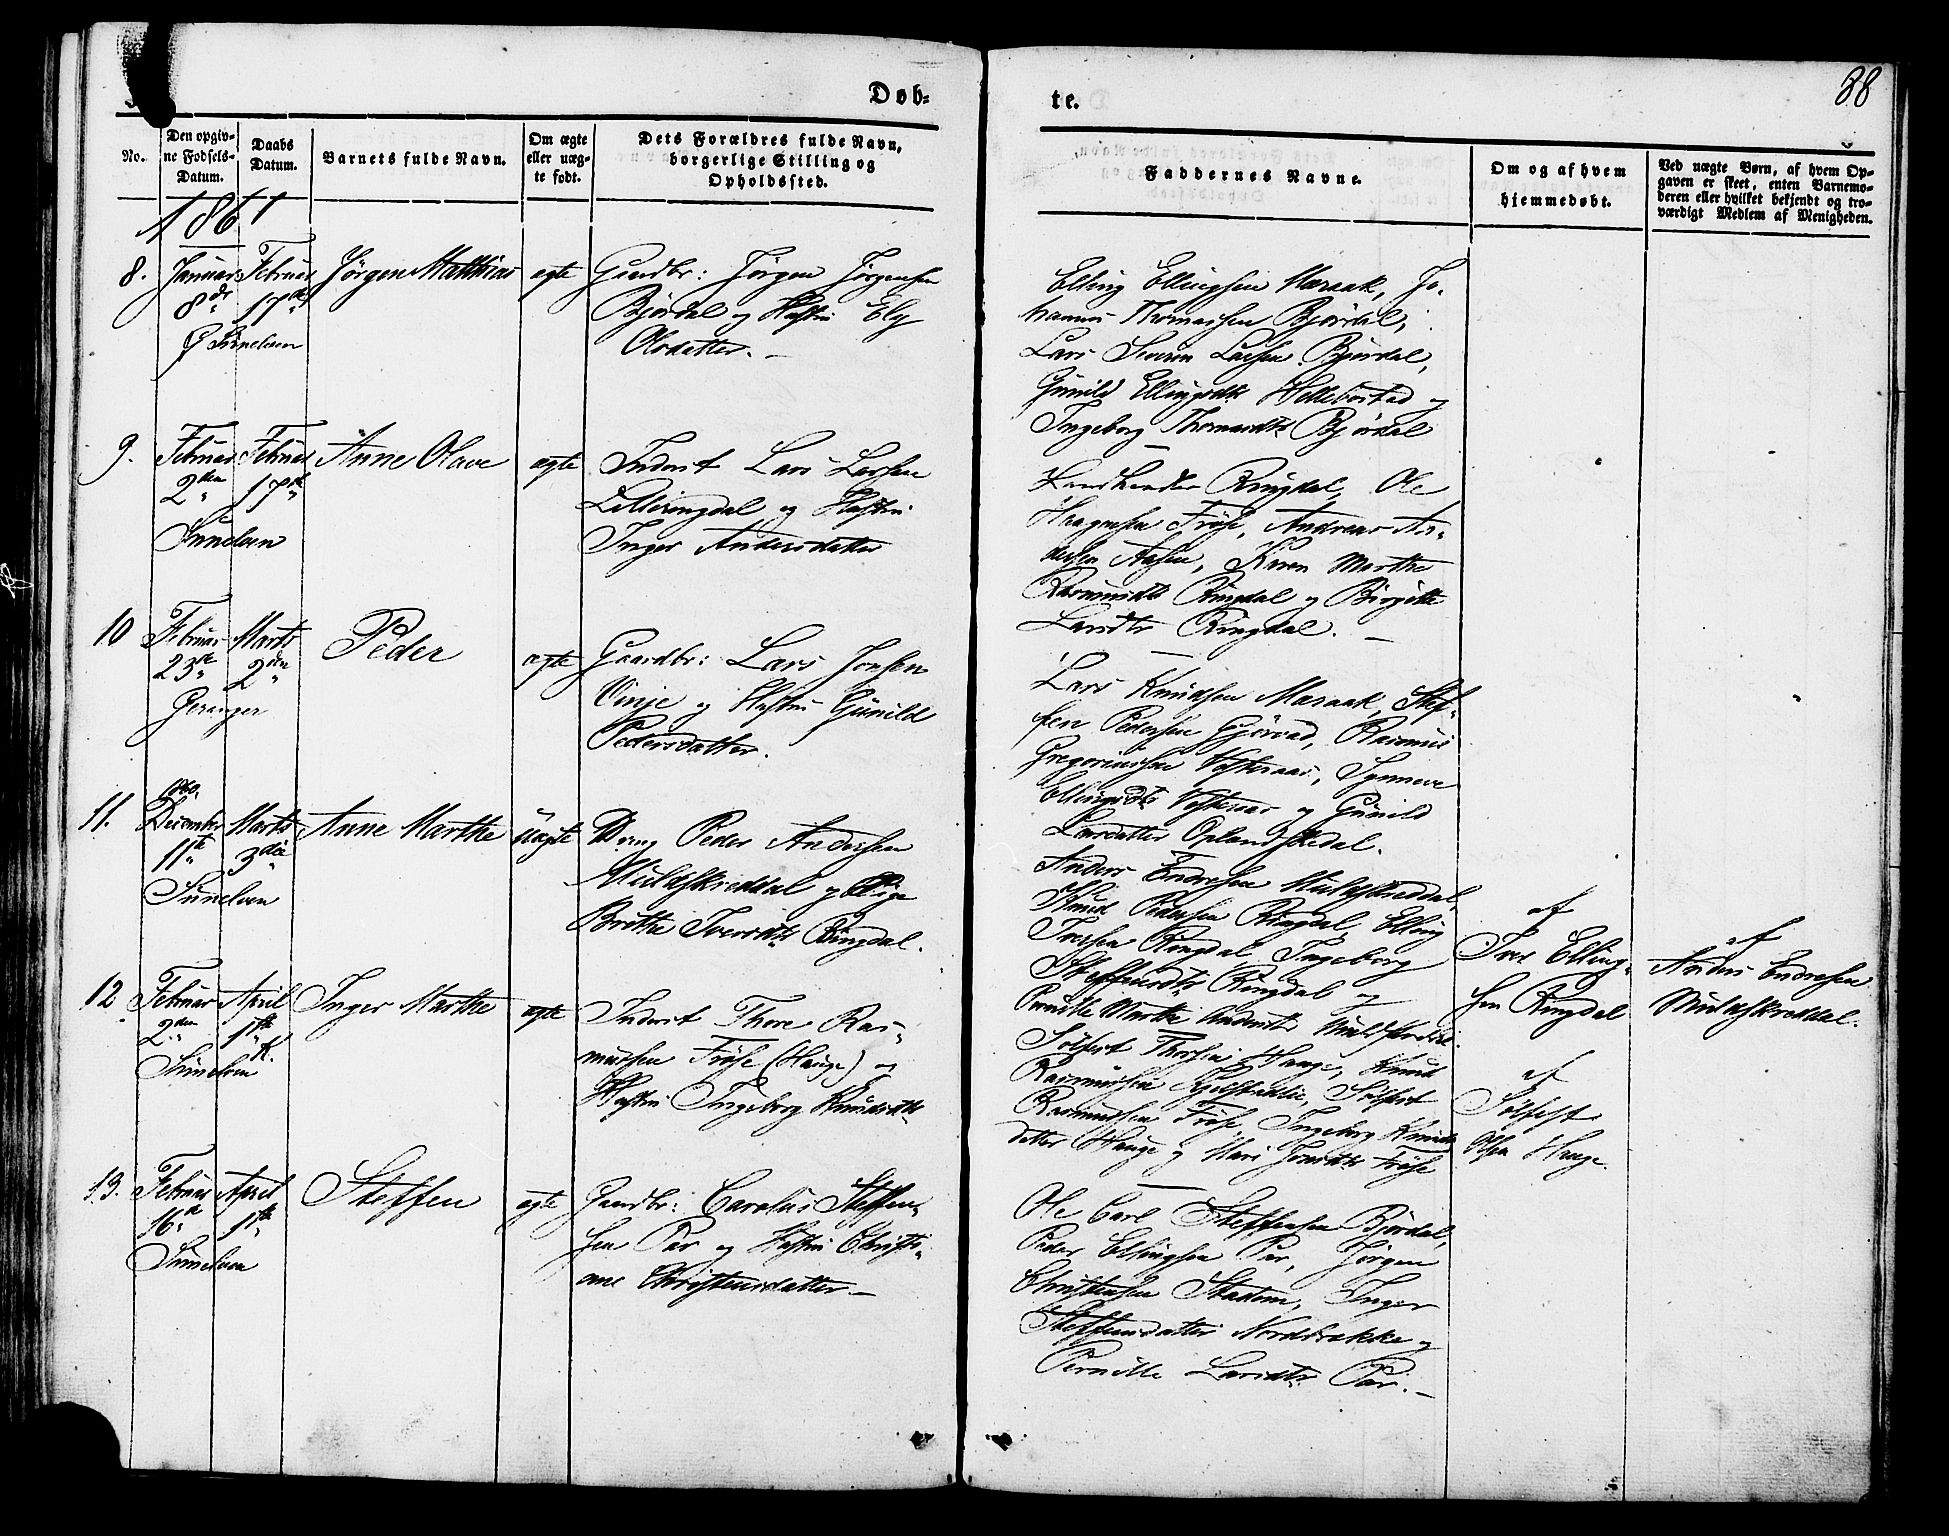 Døb=
te.
88
No.
Den opgiv=
ne Fødsels=
Datum.
Daabs
Datum.
Barnets fulde Navn.
Om ægte
eller uæg=
te født.
Dets Forældres fulde Navn,
borgerlige Stilling og
Opholdssted.
Faddernes Navne.
Om og af hvem
hjemmedøbt.
Ved uægte Børn, af hvem Op=
gaven er skeet, enten Barnemo=
deren eller hvilket bekjendt og tro=
værdigt Medlem af Menigheden.
1861
8.
Januar
8de
Sunelven
Februar
17de
Jørgen Matthias
ægte
Gaardbr: Jørgen Jørgensen
Bjørdal og Hustru Ely
Olsdatter. –
Elling Ellingsen Maraak, Jo-
hannes Thomassen Bjørdal,
Lars Severin Larsen Bjørdal,
Gunild Ellingsdtr Hellebostad og
Ingeborg Thomasdtr Bjørdal
9.
Februar
2den
Sunelven
Februar
17de
Anne Olave
ægte
Inderst Lars Larsen
Lilleringdal og Hustru
Inger Andersdatter
Ringdal, Ole
Haagensen Frøse, Andreas An-
dersen Aasen, Karen Marthe
Rasmusdtr Ringdal og Birgitte
Larsdtr Ringdal. –
10
Februar
23de
Geranger
Marts
2den
Peder
ægte
Gaardbr: Lars Jonsen
Vinje og Hustru Gunild
Pedersdatter.
Lars Knudsen Maraak, Stef-
fen Pedersen Gjørvad, Rasmus
Gregoriussen Vesteraas, Synneve
Ellingsdtr Vesteraas og Gunild
Larsdatter Oplendskedal.
11.
1860.
December
11te
Sunelven
Marts
3die
Anne Marthe
uægte
Dreng Peder Andersen
Muldskreddal og Pige
Brithe Iversdtr Ringdal.
Anders Endresen Muldskreddal,
Knud Pedersen Ringdal, Elling
Iversen Ringdal, Ingeborg
Steffensdtr Ringdal og
Pernille Marthe Andersdtr Muldskreddal.
af
Iver Elling-
sen Ringdal
af
Anders Endresen
Muldskreddal.
12
Februar
2den
Sunelven
April
1ste
Inger Marthe
ægte
Inderst Thore Ras-
mussen Frøse (Hauge) og
Hustru Ingeborg Knudsdtr
Sølfest Thoresen Hauge, Knud
Rasmussen Kjelstadlie, Sølfest
Rasmussen Frøse, Ingeborg Knuds-
datter Hauge og Mari Jonsdtr Frøse
af
Sølfest
Olsen Hauge.
13.
Februar
16de
Sunelven
April
1ste
Steffen
ægte
Gaardbr: Carolus Steffen-
sen Rar og Hustru Christi-
ane Christensdatter. –
Ole Carl Steffensen Bjørdal,
Peder Ellingsen Rar, Jørgen
Christensen Stadem, Inger
Steffensdatter Norddrakke og
Pernille Larsdtr Rar. –